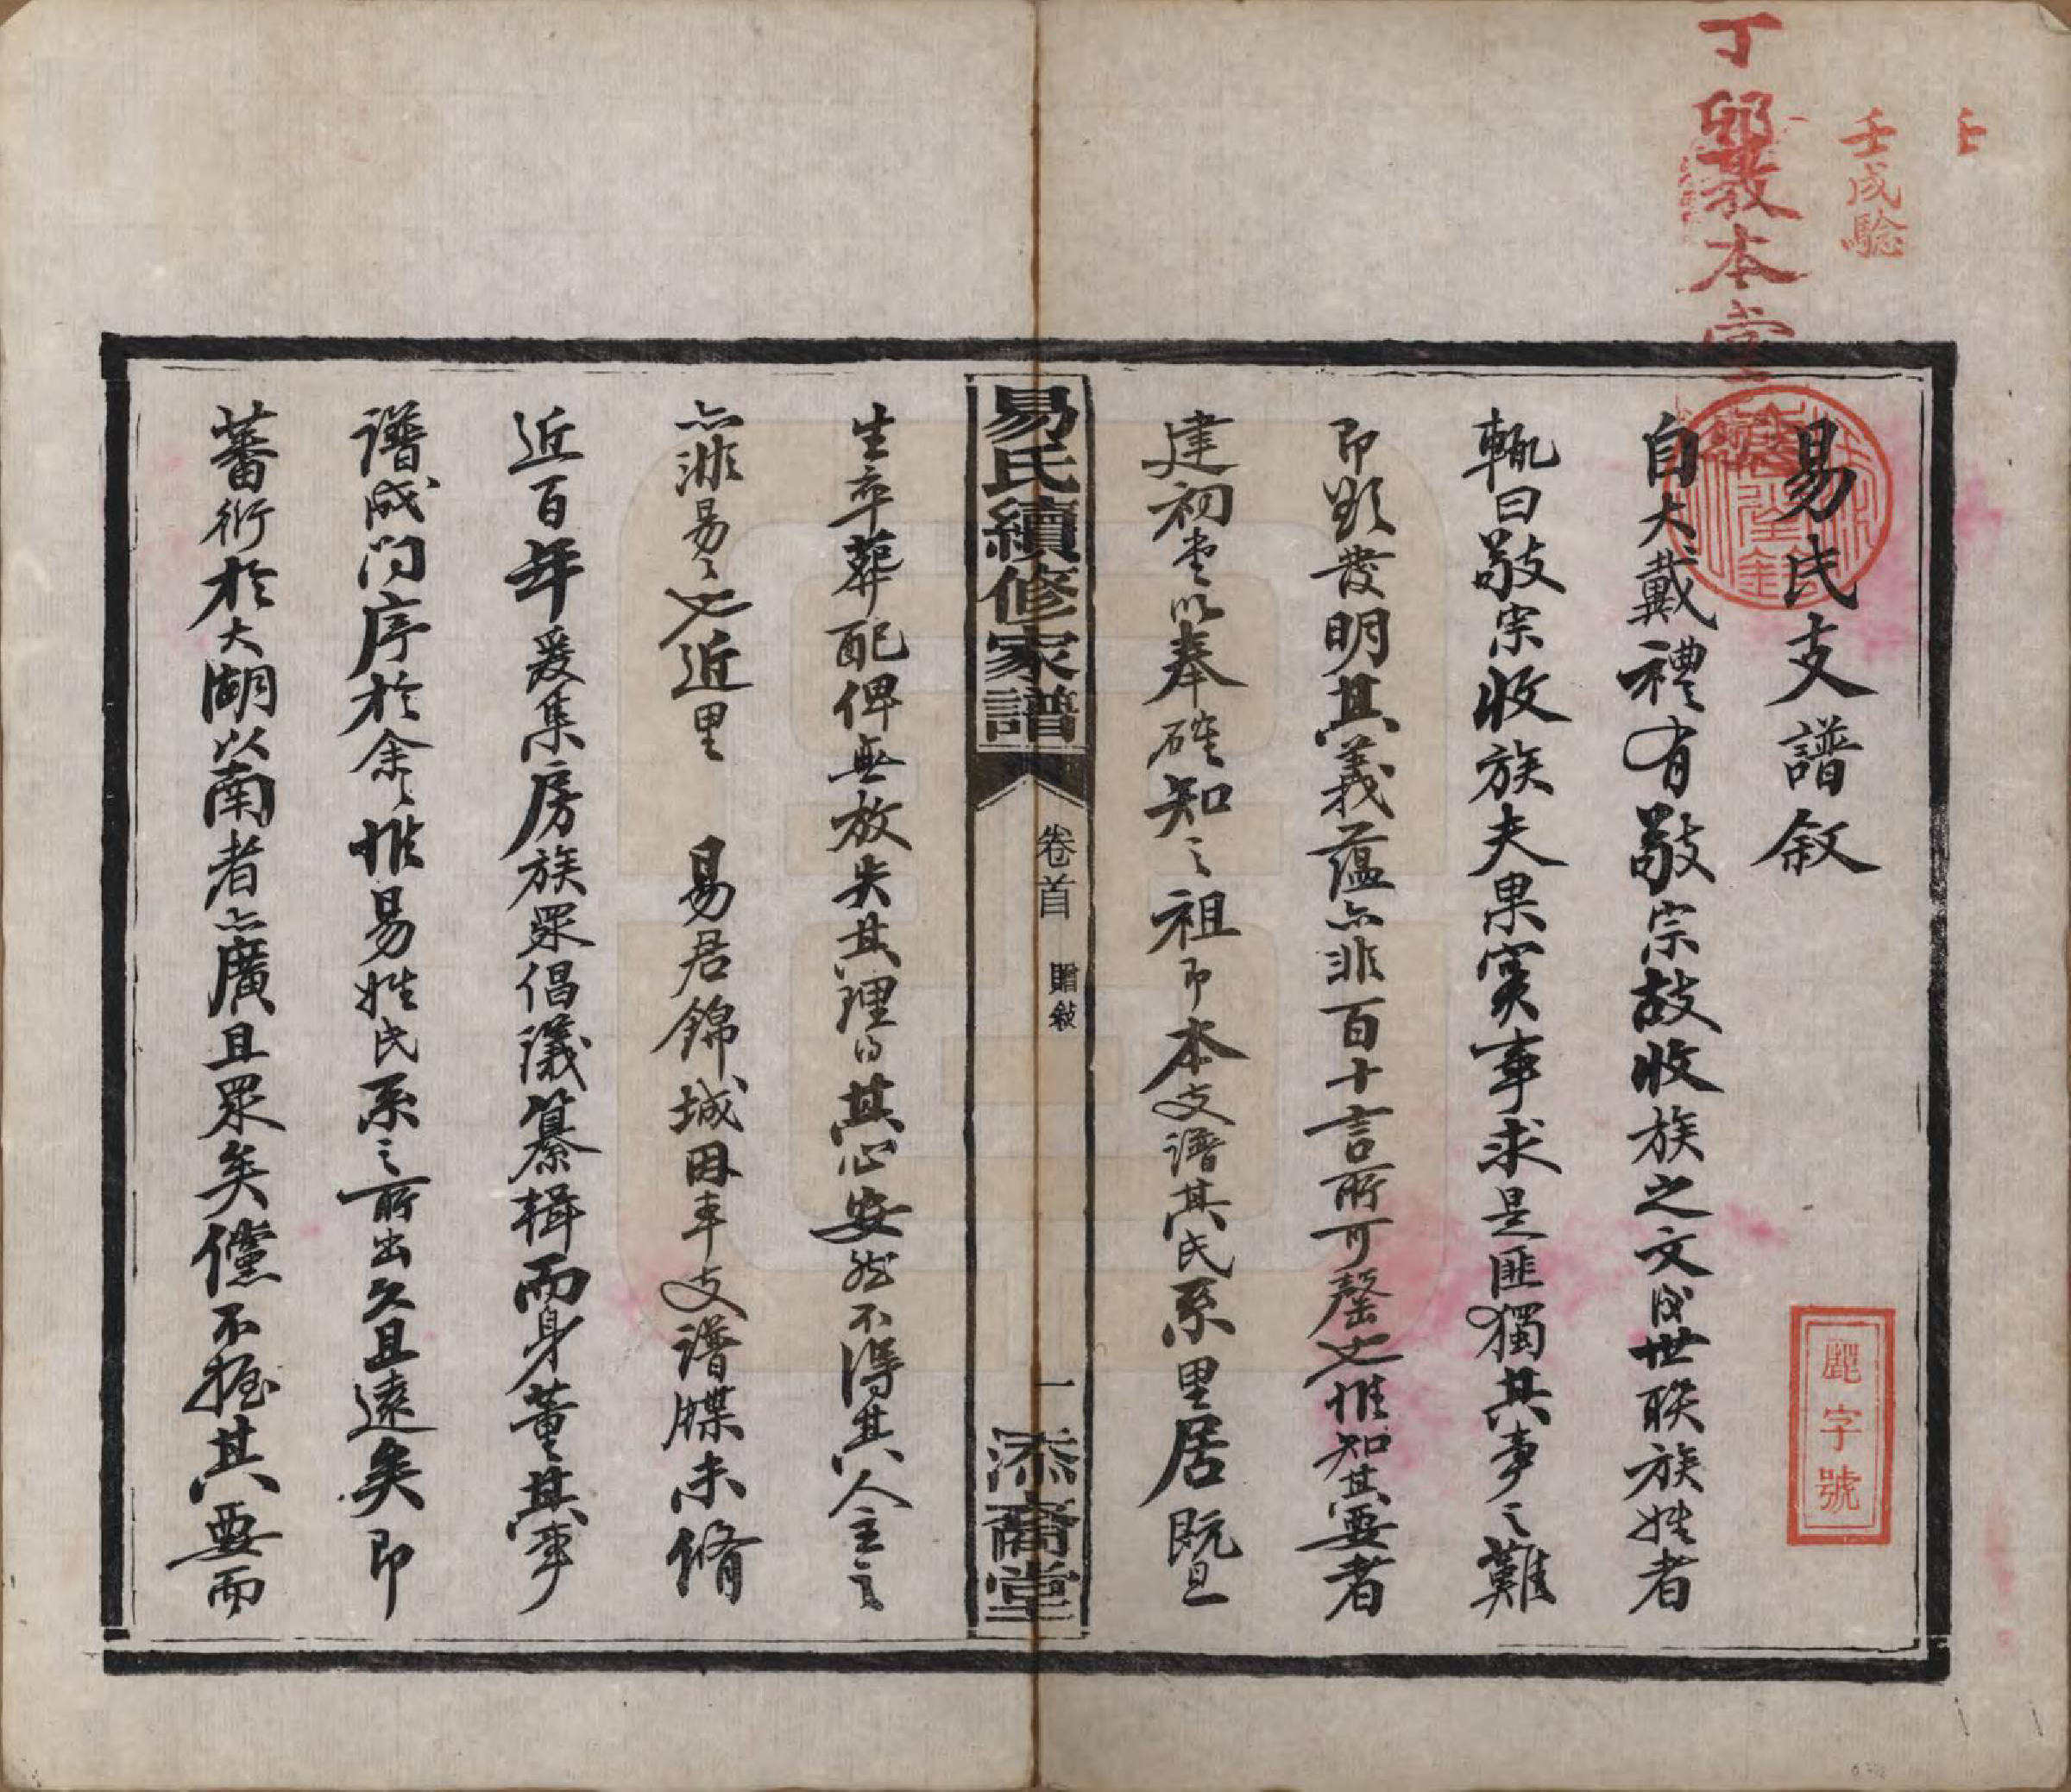 丁卯敦本堂
壬戌驗
壬
易氏支譜敘
自大戴禮有敬宗故收族之文後世聯族姓者
輒曰敬宗收族夫果實事求是匪獨其事之難
即顯發明其義蘊亦非百十言所可罄也惟知其要者
建初堂以奉確知之祖即本支譜其氏系里居暨
易氏續修家譜
卷首
贈敍
一
添裔堂
生卒葬配俾無放失其理得其心安然不得其人全之
亦非易易也近里 易君錦城因本支譜牒未脩
近百年爰集房族眾倡議纂輯而身董其事
譜成問序於余余惟易姓氏系之所出久且遠矣即
蕃衍於大湖以南者亦廣且眾矣儻不握其要而
字號